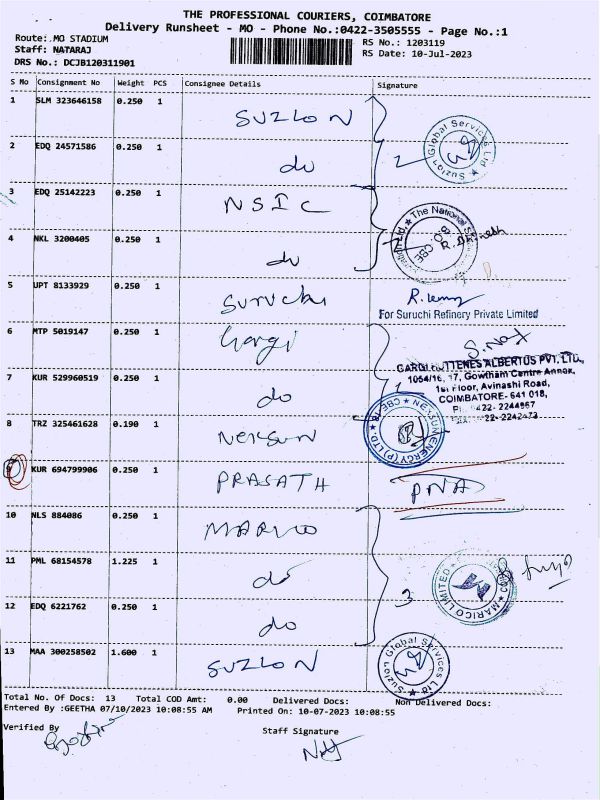 THE PROFESSIONAL COURIERS, COIMBATORE
Delivery Runsheet - MO - Phone No.:0422-3505555 - Page No.:1
Route:.MG STADIUM
RS No.: 1203119
Staff: NATARAJ
RS Date: 10-Jul-2023
DRS No.: DCJB120311901
S No Consignment No Weight PCS Consignee Details Signature
1 SLM 323646158 0.250 1 SUZLON
2 EDQ 24571586 0.250 1 do 2 Suzlon Global Services Ltd
3 EDQ 25142223 0.250 1 NSIC
4 NKL 3200405 0.250 1 do The National
5 UPT 8133929 0.250 1 Suruchi
For Suruchi Refinery Private Limited
6 MTP 5019147 0.250 1 Gargi
GARGI HUTTENES ALBERTUS PVT. LTD.,
1054/16, 17, Gowtham Centre Annex,
7 KUR 529960519 0.250 1 do 1st Floor, Avinashi Road,
COIMBATORE- 641 018,
8 TRZ 325461628 0.190 1 Neksun NEXSUN ENERGY (P) LTD. CBE-18
9 KUR 694799906 0.250 1 PRASATH PNA
10 NLS 884086 0.250 1 MARICO
11 PML 68154578 1.225 1 do
12 EDQ 6221762 0.250 1 do 3 MARICO LIMITED
13 MAA 300258502 1.600 1 SUZLON Suzlon Global Services Ltd
Total No. Of Docs: 13 Total COD Amt: 0.00 Delivered Docs: Non Delivered Docs:
Entered By :GEETHA 07/10/2023 10:08:55 AM Printed On: 10-07-2023 10:08:55
Verified By
Staff Signature